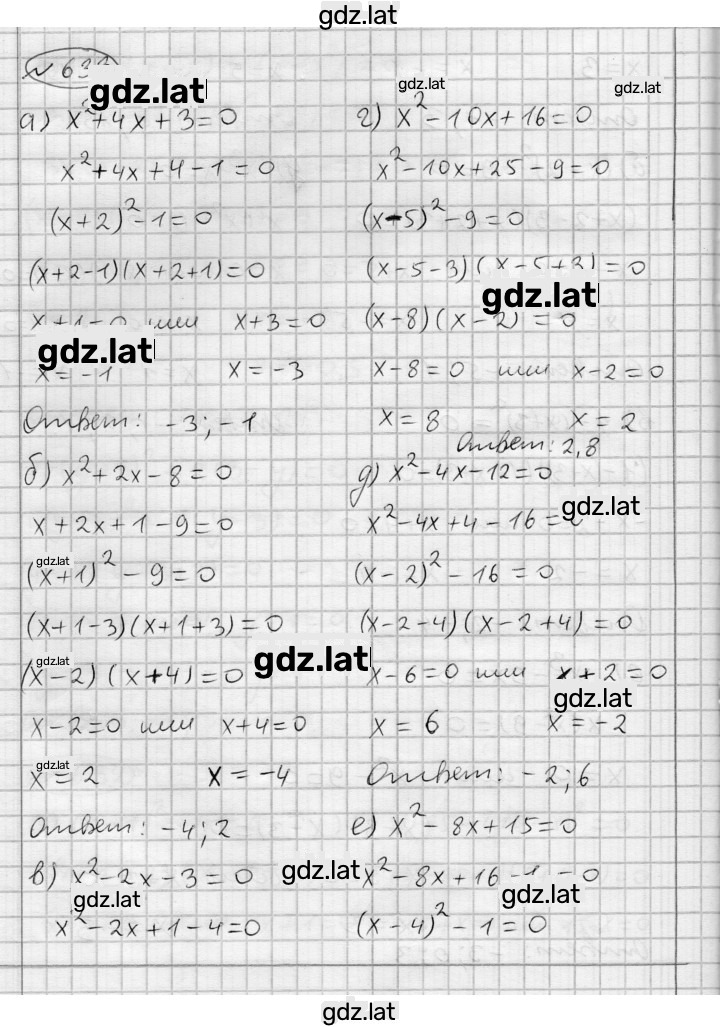 gdz.lat
№ 63
gdz.lat
gdz.lat
gdz.lat
а) x²+4x+3=0
x²+4x+4-1=0
(x+2)²-1=0
(x+2-1)(x+2+1)=0
или x+3=0
gdz.lat
x=-1 x=-3
Ответ: -3;-1
б) x²+2x-8=0
x+2x+1-9=0
gdz.lat
(x+1)²-9=0
(x+1-3)(x+1+3)=0
gdz.lat
(x-2)(x+4)=0
gdz.lat
x-2=0 или x+4=0
gdz.lat
x=2 x=-4
Ответ: -4;2
в) x²-2x-3=0
gdz.lat
x²-2x+1-4=0
г) x²-10x+16=0
x²-10x+25-9=0
(x-5)²-9=0
(x-5-3)(x-5+3)=0
gdz.lat
(x-8)(x-2)=0
x-8=0 или x-2=0
x=8 x=2
Ответ: 2,8
д) x²-4x-12=0
gdz.lat
x²-4x+4-16=0
(x-2)²-16=0
(x-2-4)(x-2+4)=0
x-6=0 или x+2=0
gdz.lat
x=6 x=-2
Ответ: -2;6
е) x²-8x+15=0
gdz.lat
x²-8x+16-1=0
gdz.lat
(x-4)²-1=0
gdz.lat